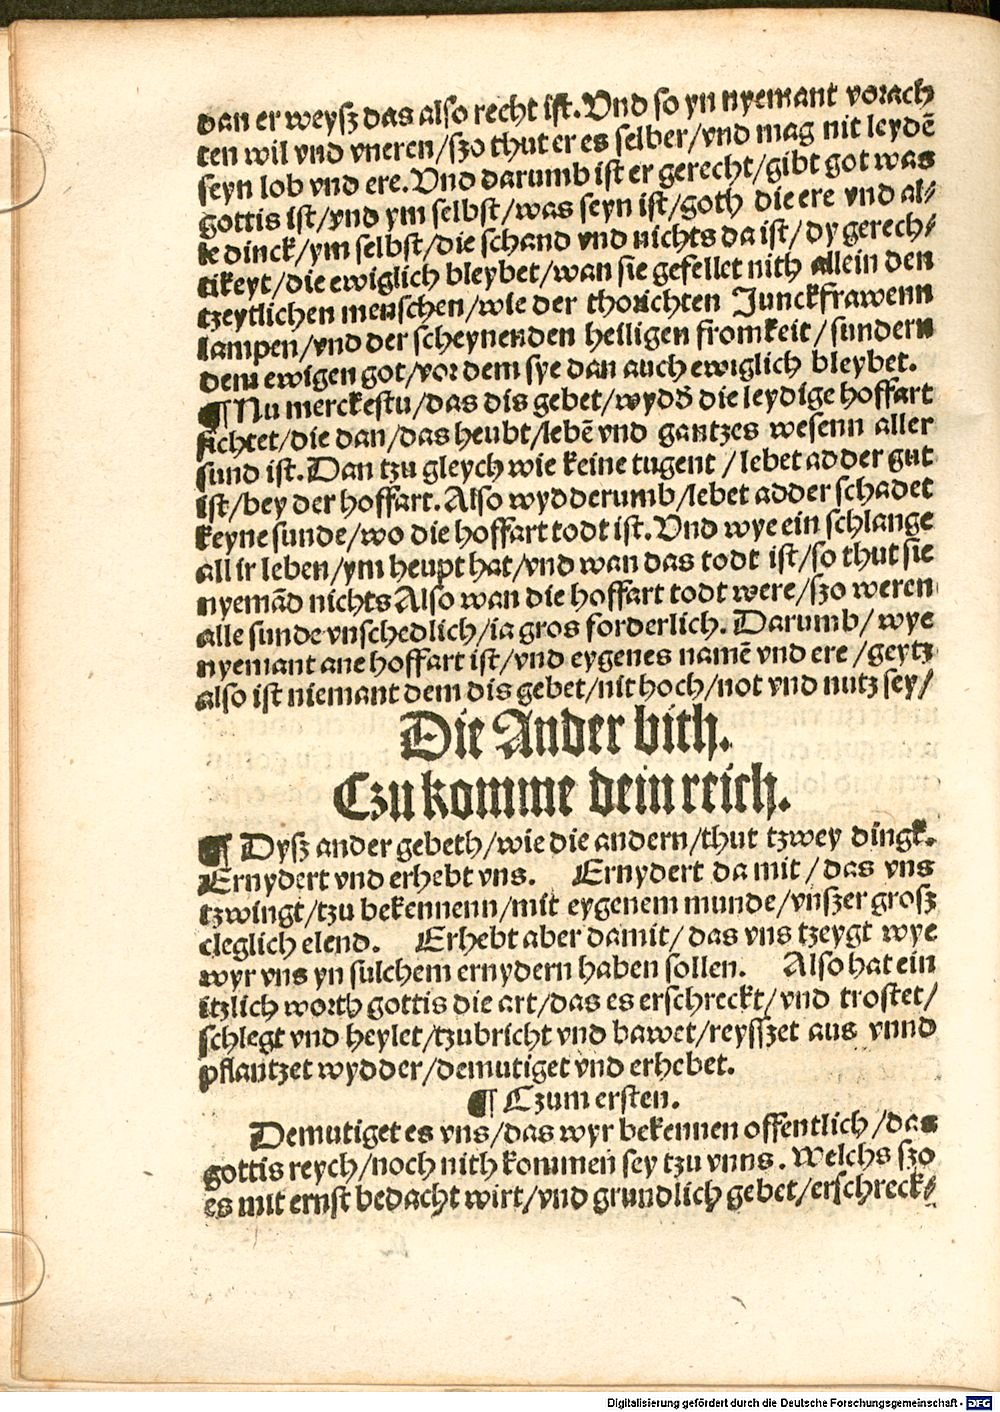 dan er weysz das also recht ist. Vnd so yn nyemant vorach
ten wil vnd vneren/szo thut er es selber/vnd mag nit leydē
seyn lob vnd ere. Vnd darumb ist er gerecht/gibt got was
gottis ist/vnd ym selbst/was seyn ist/goth die ere vnd al⸗
le dinck/ym selbst/die schand vnd nichts da ist/dy gerech⸗
tikeyt/die ewiglich bleybet/wan sie gefellet nith allein den
tzeytlichen menschen/wie der thorichten Junckfrawenn
lampen/vnd der scheynenden heiligen fromkeit/sundern
dem ewigen got/vor dem sye dan auch ewiglich bleybet.
¶ Nu merckestu/das dis gebet/wydd' die leydige hoffart
fichtet/die dan/das heubt/lebē vnd gantzes wesenn aller
sund ist. Dan tzu gleych wie keine tugent/lebet adder gut
ist/bey der hoffart. Also wydderumb/lebet adder schadet
keyne sunde/wo die hoffart todt ist. Vnd wye ein schlange
all ir leben/ym heupt hat/vnd wan das todt ist/so thut sie
nyemād nichts Also wan die hoffart todt were/szo weren
alle sunde vnschedlich/ia gros forderlich. Darumb/wye
nyemant ane hoffart ist/vnd eygenes namē vnd ere/geytz
also ist niemant dem dis gebet/nit hoch/not vnd nutz sey/
Die Ander bith.
Czu komme dein reich.
¶ Dysz ander gebeth/wie die andern/thut tzwey dingk.
Ernydert vnd erhebt vns. Ernydert da mit/das vns
tzwingt/tzu bekennenn/mit eygenem munde/vnszer grosz
cleglich elend. Erhebt aber damit/das vns tzeygt wye
wyr vns yn sulchem ernydern haben sollen. Also hat ein
itzlich worth gottis die art/das es erschreckt/vnd trostet/
schlegt vnd heylet/tzubricht vnd bawet/reyszet aus vnnd
pflantzet wydder/demutiget vnd erhebet.
¶ Czum ersten.
Demutiget es vns/das wyr bekennen offentlich/das
gottis reych/noch nith kommen sey tzu vnns. Welchs szo
es mit ernst bedacht wirt/vnd grundlich gebet/erschreck⸗
Digitalisierung gefördert durch die Deutsche Forschungsgemeinschaft - DFG